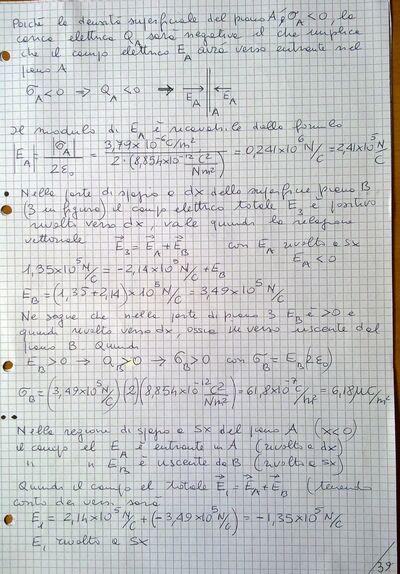 Poiché la densità superficiale del piano A è σ_A < 0, la
carica elettrica Q_A sarà negativa il che implica
che il campo elettrico E_A avrà verso entrante nel
piano A
σ_A < 0 ⇒ Q_A < 0 ⇒ E_A E_A
Il modulo di E_A è ricavabile dalla formula
|E_A| = |σ_A| / 2ε₀ = 3,79 × 10⁻⁶ C/m² / 2·(8,854×10⁻¹² C²/Nm²) = 0,241×10⁶ N/C = 2,41×10⁵ N/C
• Nella parte di spazio a dx della superficie piano B
(3 in figura) il campo elettrico totale E₃ è positivo
rivolto verso dx, vale quindi la relazione
vettoriale E⃗₃ = E⃗_A + E⃗_B con E_A rivolto a sx
E_A < 0
1,35×10⁵ N/C = -2,14×10⁵ N/C + E_B
E_B = (1,35 + 2,14)×10⁵ N/C = 3,49×10⁵ N/C
Ne segue che nella parte di piano 3 E_B è > 0 e
quindi rivolto verso dx, ossia in verso uscente dal
piano B. Quindi
E_B > 0 → Q_B > 0 → σ_B > 0 con σ_B = E_B(2ε₀)
σ_B = (3,49×10⁵ N/C)(2)(8,854×10⁻¹² C²/Nm²) = 61,8×10⁻⁷ C/m² = 6,18 μC/m²
Nella regione di spazio a sx del piano A (x<0)
il campo el E_A è entrante in A (rivolto a dx)
" " E_B è uscente da B (rivolto a sx)
Quindi il campo el totale E⃗₁ = E⃗_A + E⃗_B (tenendo
conto dei versi) sarà
E₁ = 2,14×10⁵ N/C + (-3,49×10⁵ N/C) = -1,35×10⁵ N/C
E₁ rivolto a sx
/39